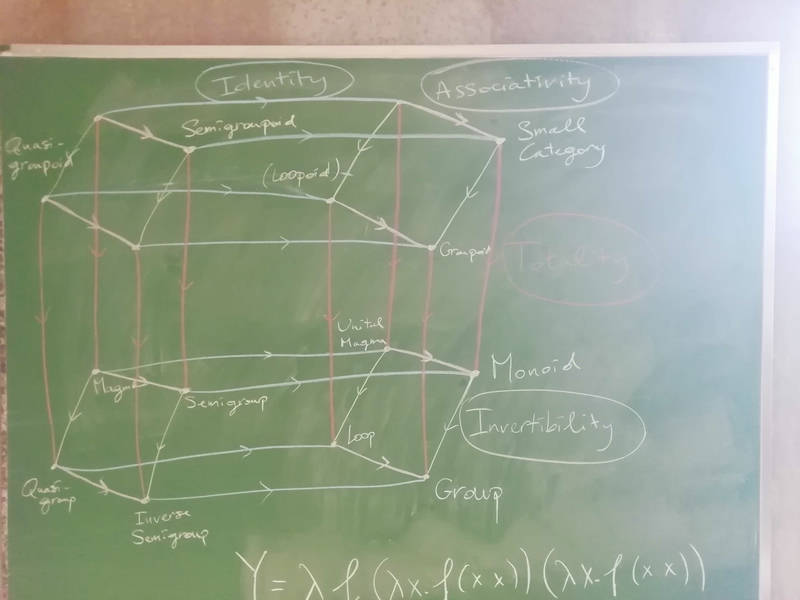 Identity
Associativity
Quasi-
groupoid
Semigroupoid
Small
Category
(Loopoid)
Groupoid
Totality
Unital
Magma
Magma
Semigroup
Monoid
Invertibility
Loop
Quasi-
group
Inverse
Semigroup
Group
Y = λf. (λx. f(x x)) (λx. f(x x))